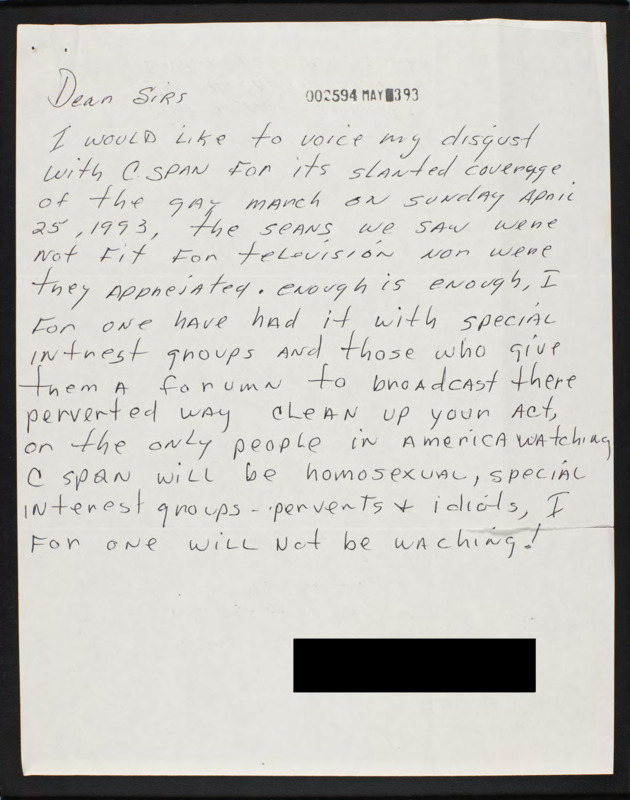 Dear Sirs
002594 MAY 393
I would like to voice my disgust
with C.SPAN for its slanted coverage
of the gay march on sunday April
25, 1993, the seans we saw were
not fit for television nor were
they appreiated. enough is enough, I
for one have had it with special
intrest groups and those who give
them a forumn to broadcast there
perverted way clean up your act,
or the only people in America watching
C span will be homosexual, special
interest groups - perverts + idiots, I
for one will not be waching!